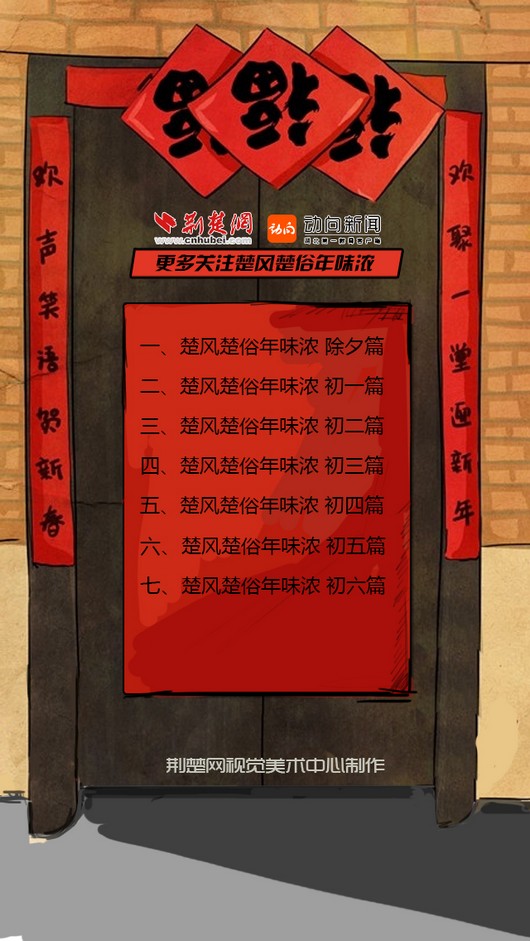 福 福 福
荆楚網 www.cnhubei.com 动向 动向新闻
湖北第一新闻客户端
更多关注楚风楚俗年味浓
欢聚一堂迎新年
欢声笑语贺新春
一、楚风楚俗年味浓 除夕篇
二、楚风楚俗年味浓 初一篇
三、楚风楚俗年味浓 初二篇
四、楚风楚俗年味浓 初三篇
五、楚风楚俗年味浓 初四篇
六、楚风楚俗年味浓 初五篇
七、楚风楚俗年味浓 初六篇
荆楚网视觉美术中心制作